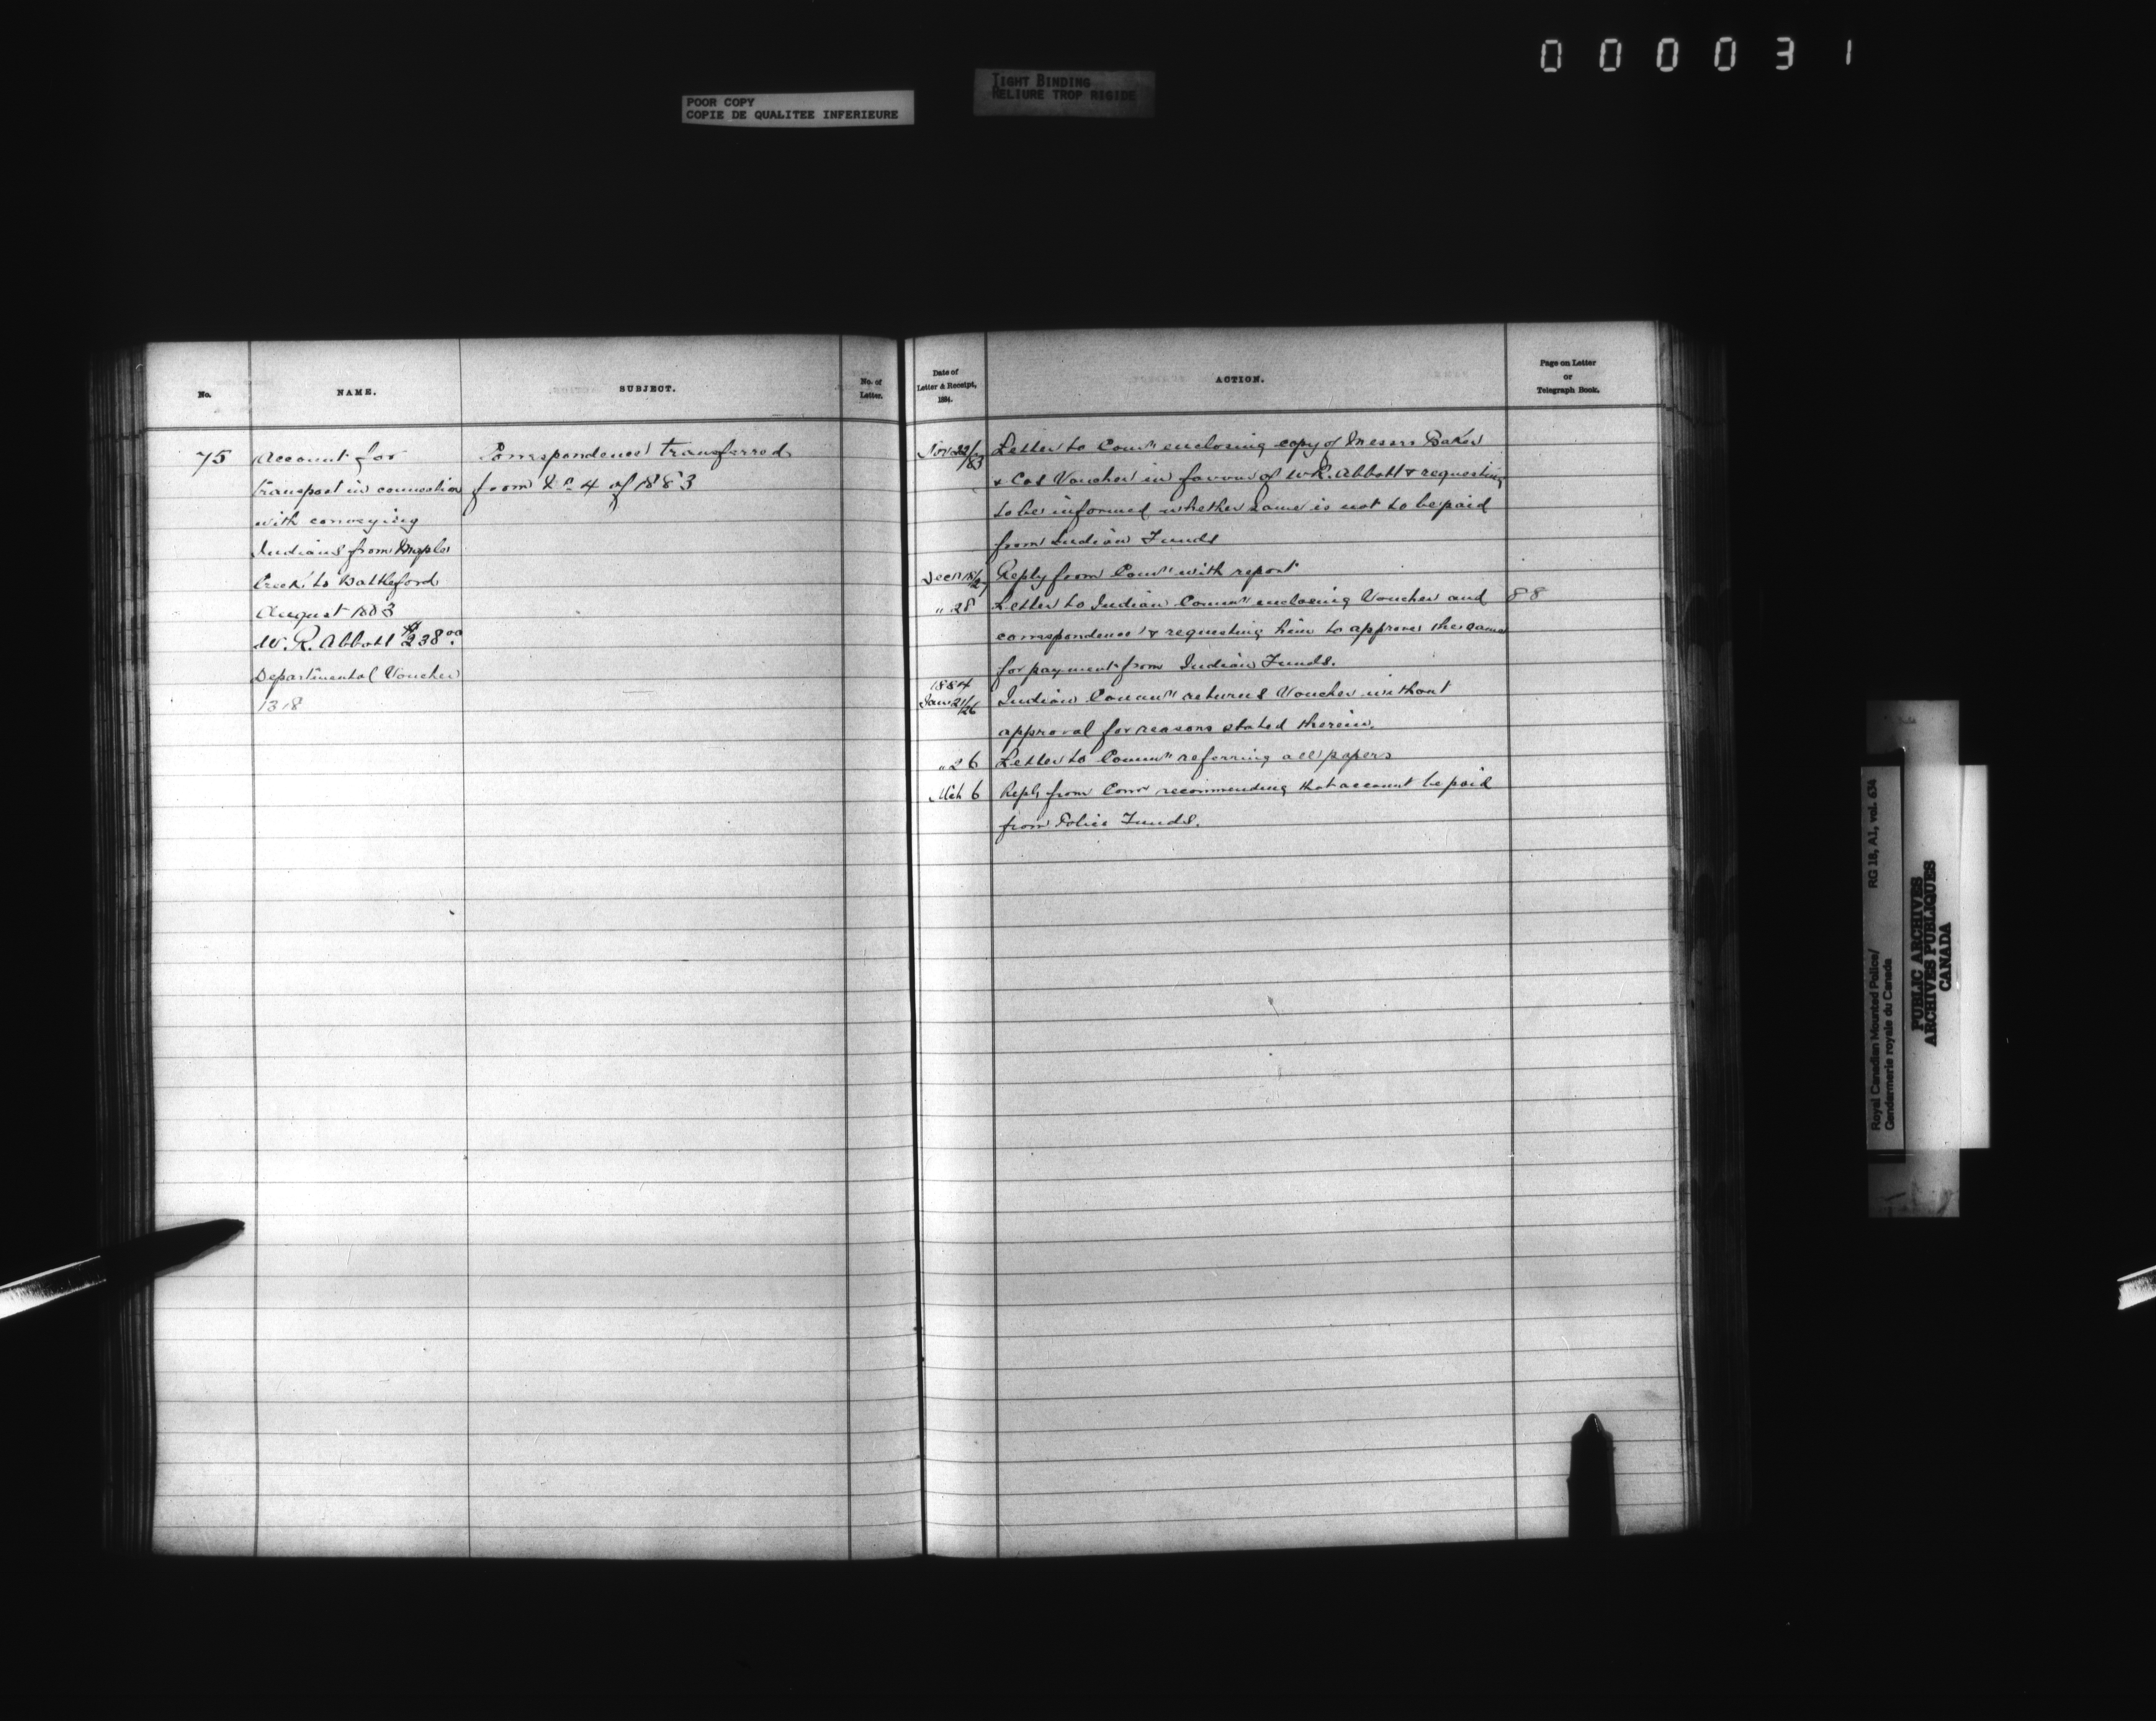 000031
POOR COPY
COPIE DE QUALITEE INFERIEURE
TIGHT BINDING
RELIURE TROP RIGIDE
No.
NAME.
SUBJECT.
No. of
Letter.
75
Account for
transport in connection
with conveying
Indians from Maple
Creek to Battleford
August 1883
W. R. Abbott $238.00
Departmental Voucher
1318
Correspondence transferred
from 4 of 1883
Date of
Letter & Receipt,
1884.
ACTION.
Page on Letter
or
Telegraph Book.
Nov 22/83 Letter to Comr enclosing copy of Messrs Baker
& Cos Voucher in favour of W.R. Abbott & requesting
to be informed whether same is not to be paid
from Indian Funds
Dec Reply from Comr with report
" 28 Letter to Indian Commr enclosing Voucher and 88
correspondence & requesting him to approve the same
for payment from Indian Funds.
1884
Jan 21/26 Indian Commr returns Voucher without
approval for reasons stated therein.
" 26 Letter to Commr referring all papers
Mch 6 Reply from Comr recommending that account be paid
from Police Funds.
Royal Canadian Mounted Police/
Gendarmerie royale du Canada
RG 18, A1, vol. 634
PUBLIC ARCHIVES
ARCHIVES PUBLIQUES
CANADA